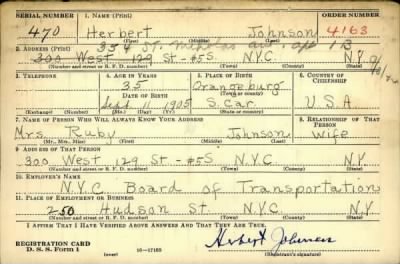 SERIAL NUMBER 1. NAME (Print) ORDER NUMBER
470 Herbert Johnson 4163
354 St. Nicholas ave. apt 1B
2. ADDRESS (Print)
300 West 129 St - #55 N.Y.C. N.Y.
(Number and street or R. F. D. number) (Town) (County) (State)
3. TELEPHONE 4. AGE IN YEARS 5. PLACE OF BIRTH 6. COUNTRY OF CITIZENSHIP
35 Orangeburg
DATE OF BIRTH (Town or county)
Sept 11 1905 S. Car. U.S.A
(Exchange) (Number) (Mo.) (Day) (Yr.) (State or country)
7. NAME OF PERSON WHO WILL ALWAYS KNOW YOUR ADDRESS 8. RELATIONSHIP OF THAT PERSON
Mrs. Ruby Johnson Wife
(Mr., Mrs., Miss) (First) (Middle) (Last)
9. ADDRESS OF THAT PERSON
300 West 129 St - #55 N.Y.C. N.Y
(Number and street or R. F. D. number) (Town) (County) (State)
10. EMPLOYER'S NAME
N.Y.C Board of Transportation
11. PLACE OF EMPLOYMENT OR BUSINESS
250 Hudson St. N.Y.C. N.Y
(Number and street or R. F. D. number) (Town) (County) (State)
I AFFIRM THAT I HAVE VERIFIED ABOVE ANSWERS AND THAT THEY ARE TRUE.
REGISTRATION CARD
D. S. S. Form 1 (over) 16-17105 Herbert Johnson
(Registrant's signature)